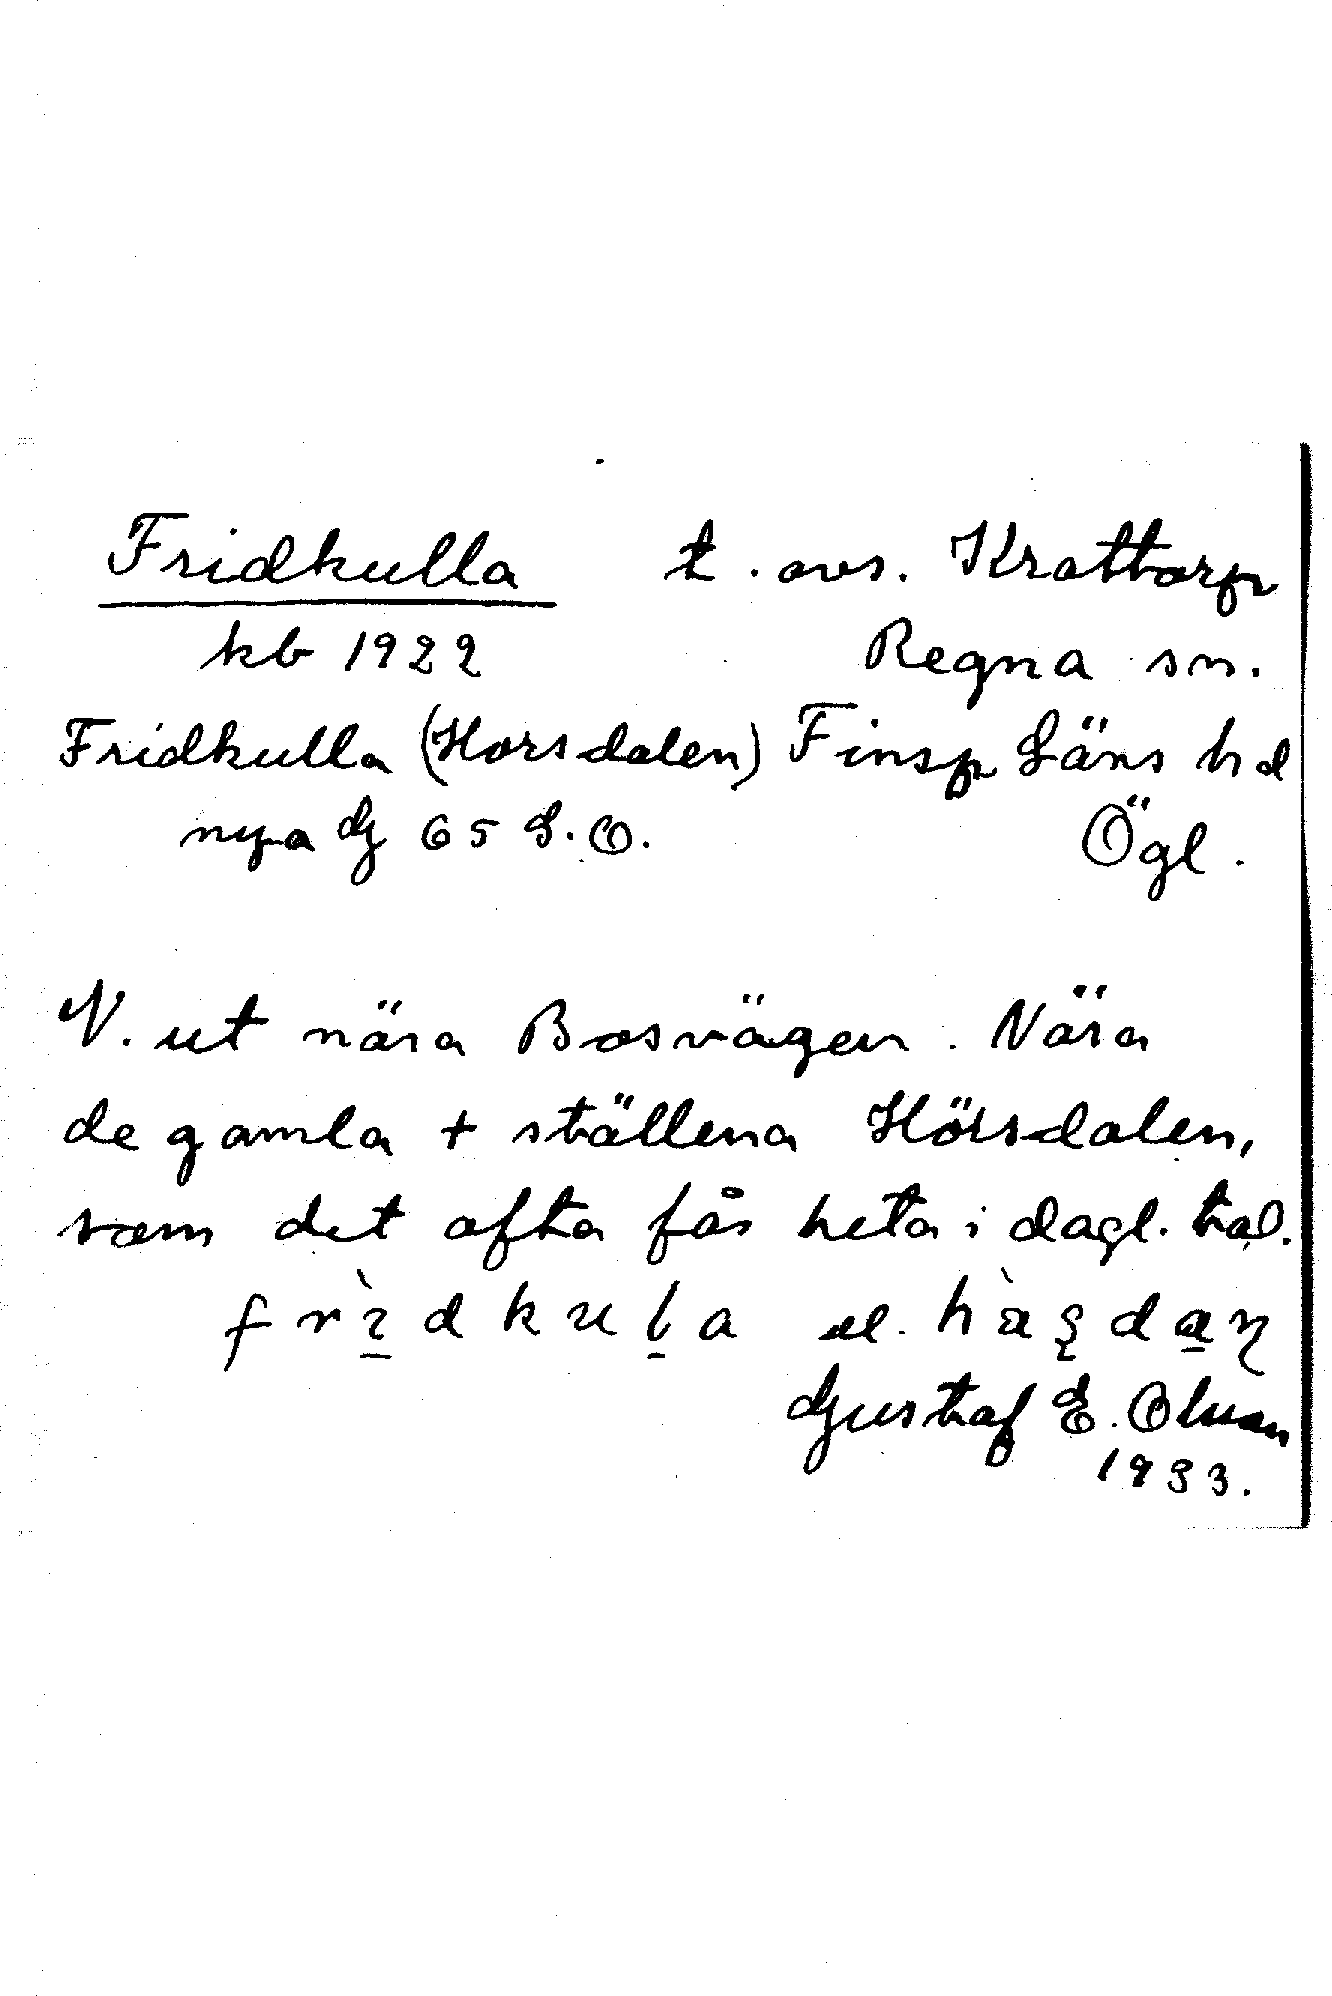 Fridkulla t. avs. Krattorp
kb 1922 Regna sn.
Fridkulla (Horsdalen) Finsp Läns hd
nya G 65 S.O. Ögl.
N. ut nära Bosvägen. Nära
de gamla + ställena Hörsdalen,
som det ofta får heta i dagl. tal.
frìdkula el. hàsdan
Gustaf E. Olsson
1933.